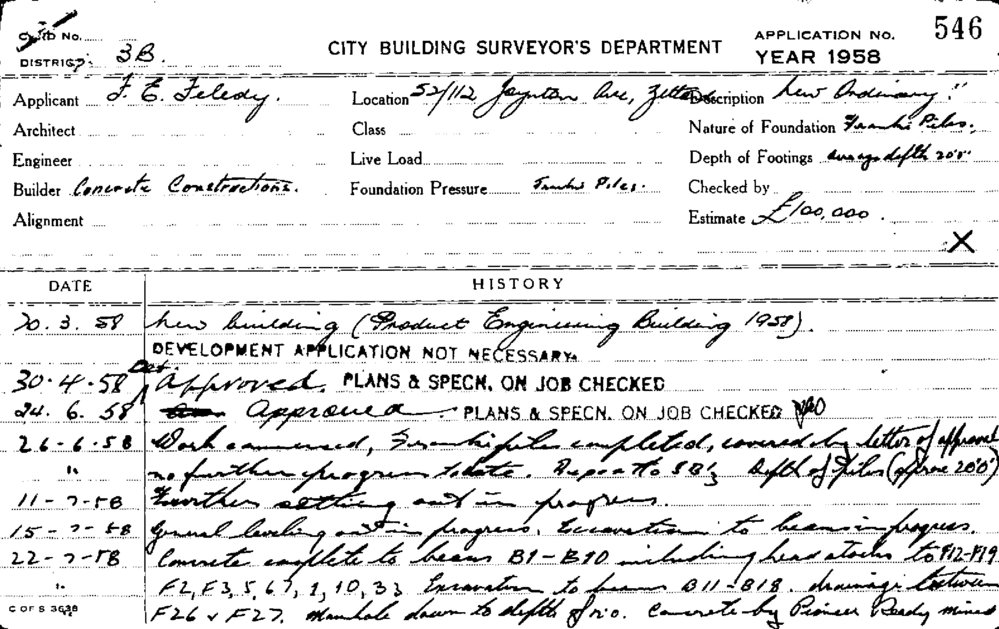 CARD No.
DISTRICT 3B.
CITY BUILDING SURVEYOR'S DEPARTMENT
APPLICATION NO. 546
YEAR 1958
Applicant F. E. Feledy. Location 52/112 Joynton Ave, Zetland Description New Ordinary
Architect Class Nature of Foundation Franki Piles.
Engineer Live Load Depth of Footings average depth 20'0"
Builder Concrete Constructions. Foundation Pressure Franki Piles. Checked by
Alignment Estimate £100,000.
X
DATE HISTORY
20.3.58 New building (Product Engineering Building 1958).
DEVELOPMENT APPLICATION NOT NECESSARY.
30.4.58 Approved. PLANS & SPECN. ON JOB CHECKED
24.6.58 Approved. PLANS & SPECN. ON JOB CHECKED
26-6-58 Work commenced, Franki piles completed, covered by letter of approval
" no further progress to date. Depth of Piles (approx 20'0")
11-7-58 Further setting out in progress.
15-7-58 General leveling out in progress. Excavation to beams in progress.
22-7-58 Concrete complete to beams B1-B10 including head stocks to F12-F19
" F2, F3, 5, 6, 7, 9, 10, 33 Excavation to beams B11-B18. drainage between
C OF S 3638 F26 & F27. Manhole down to depth of Concrete by Pioneer Ready mixed